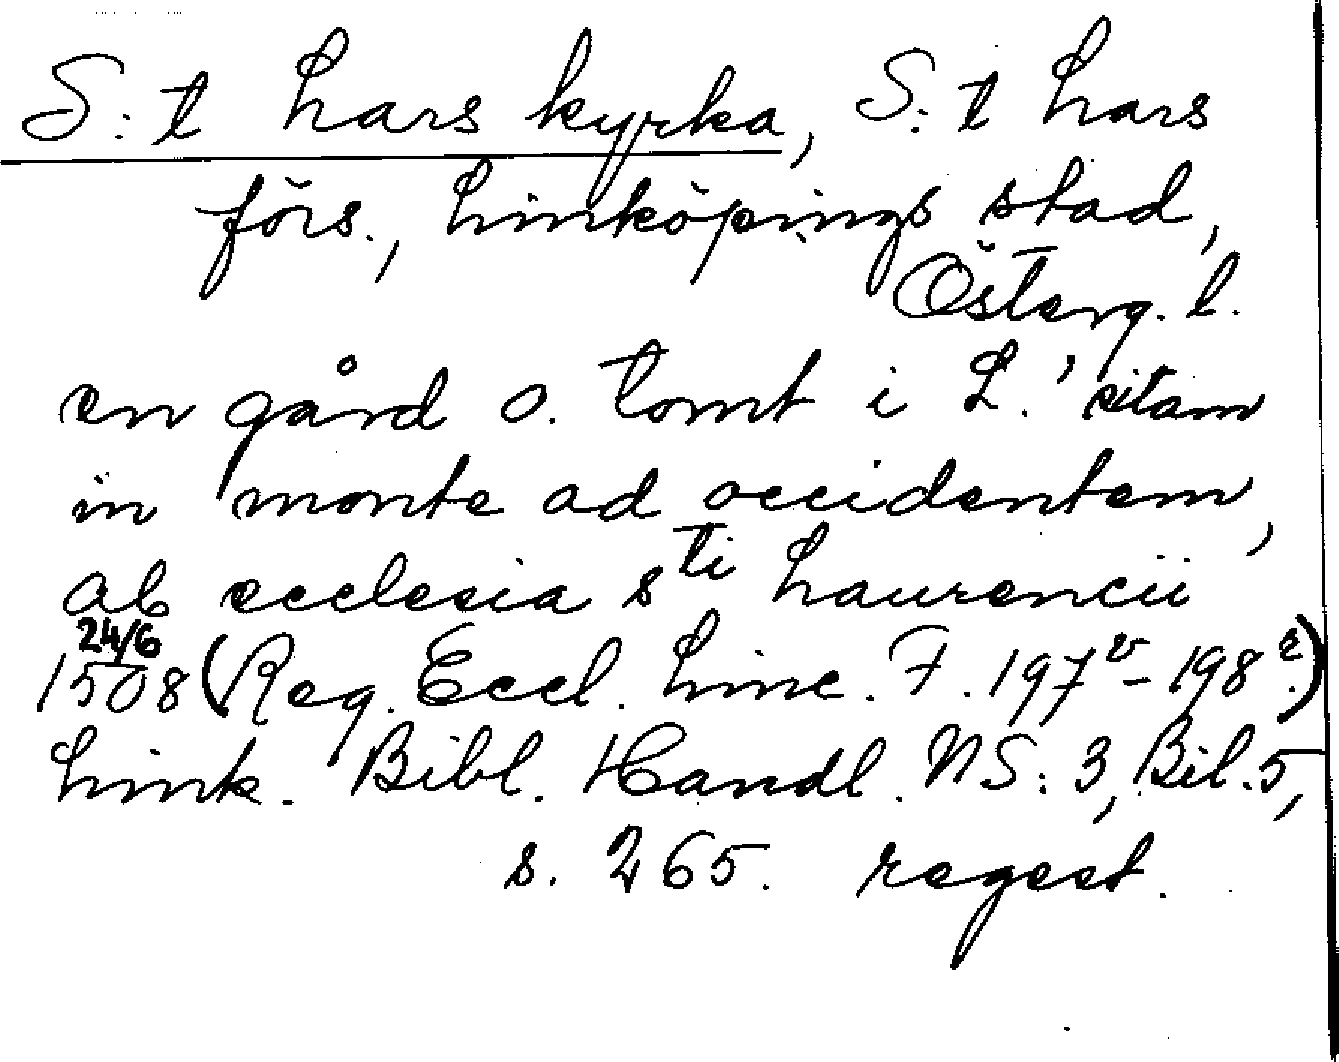 S:t Lars kyrka, S:t Lars
förs., Linköpings stad,
Österg. l.
en gård o. tomt i L. 'sitam
in monte ad occidentem,
ab ecclesia s^ti Laurencii
24/6
1508 (Reg. Eccl. Linc. F. 197^v - 198^r.)
Link. Bibl. Handl. NS: 3, Bil. 5,
s. 265. regest.